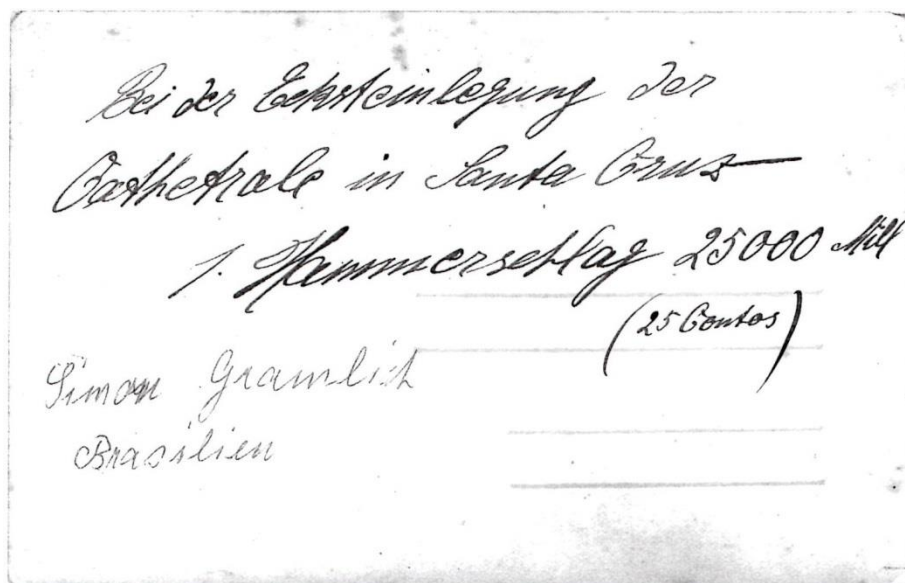 Bei der Ecksteinlegung der
Cathetrale in Santa Cruz
1. Hammerschlag 25000 Mill
(25 Contos)
Simon Gramlich
Brasilien